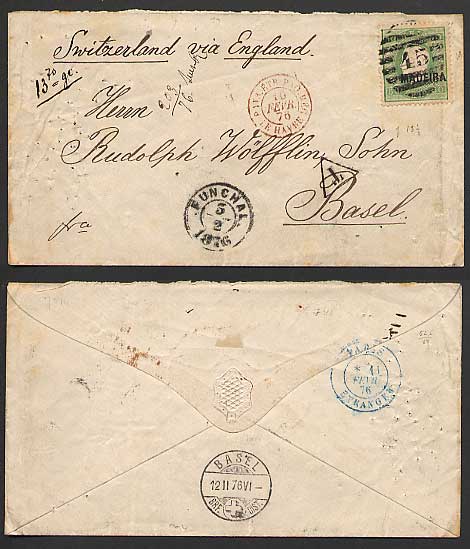 Switzerland via England.
13 70 gr.
Herrn
Rudolph Wölfflin Sohn
Basel.
fra
FUNCHAL
5
2
1876
10
FEVR
76
LE HAVRE
45
MADEIRA
PARIS
* 11
FEVR
76
ETRANGER
BASEL
12 II 76 VI –
BRF. DIST.